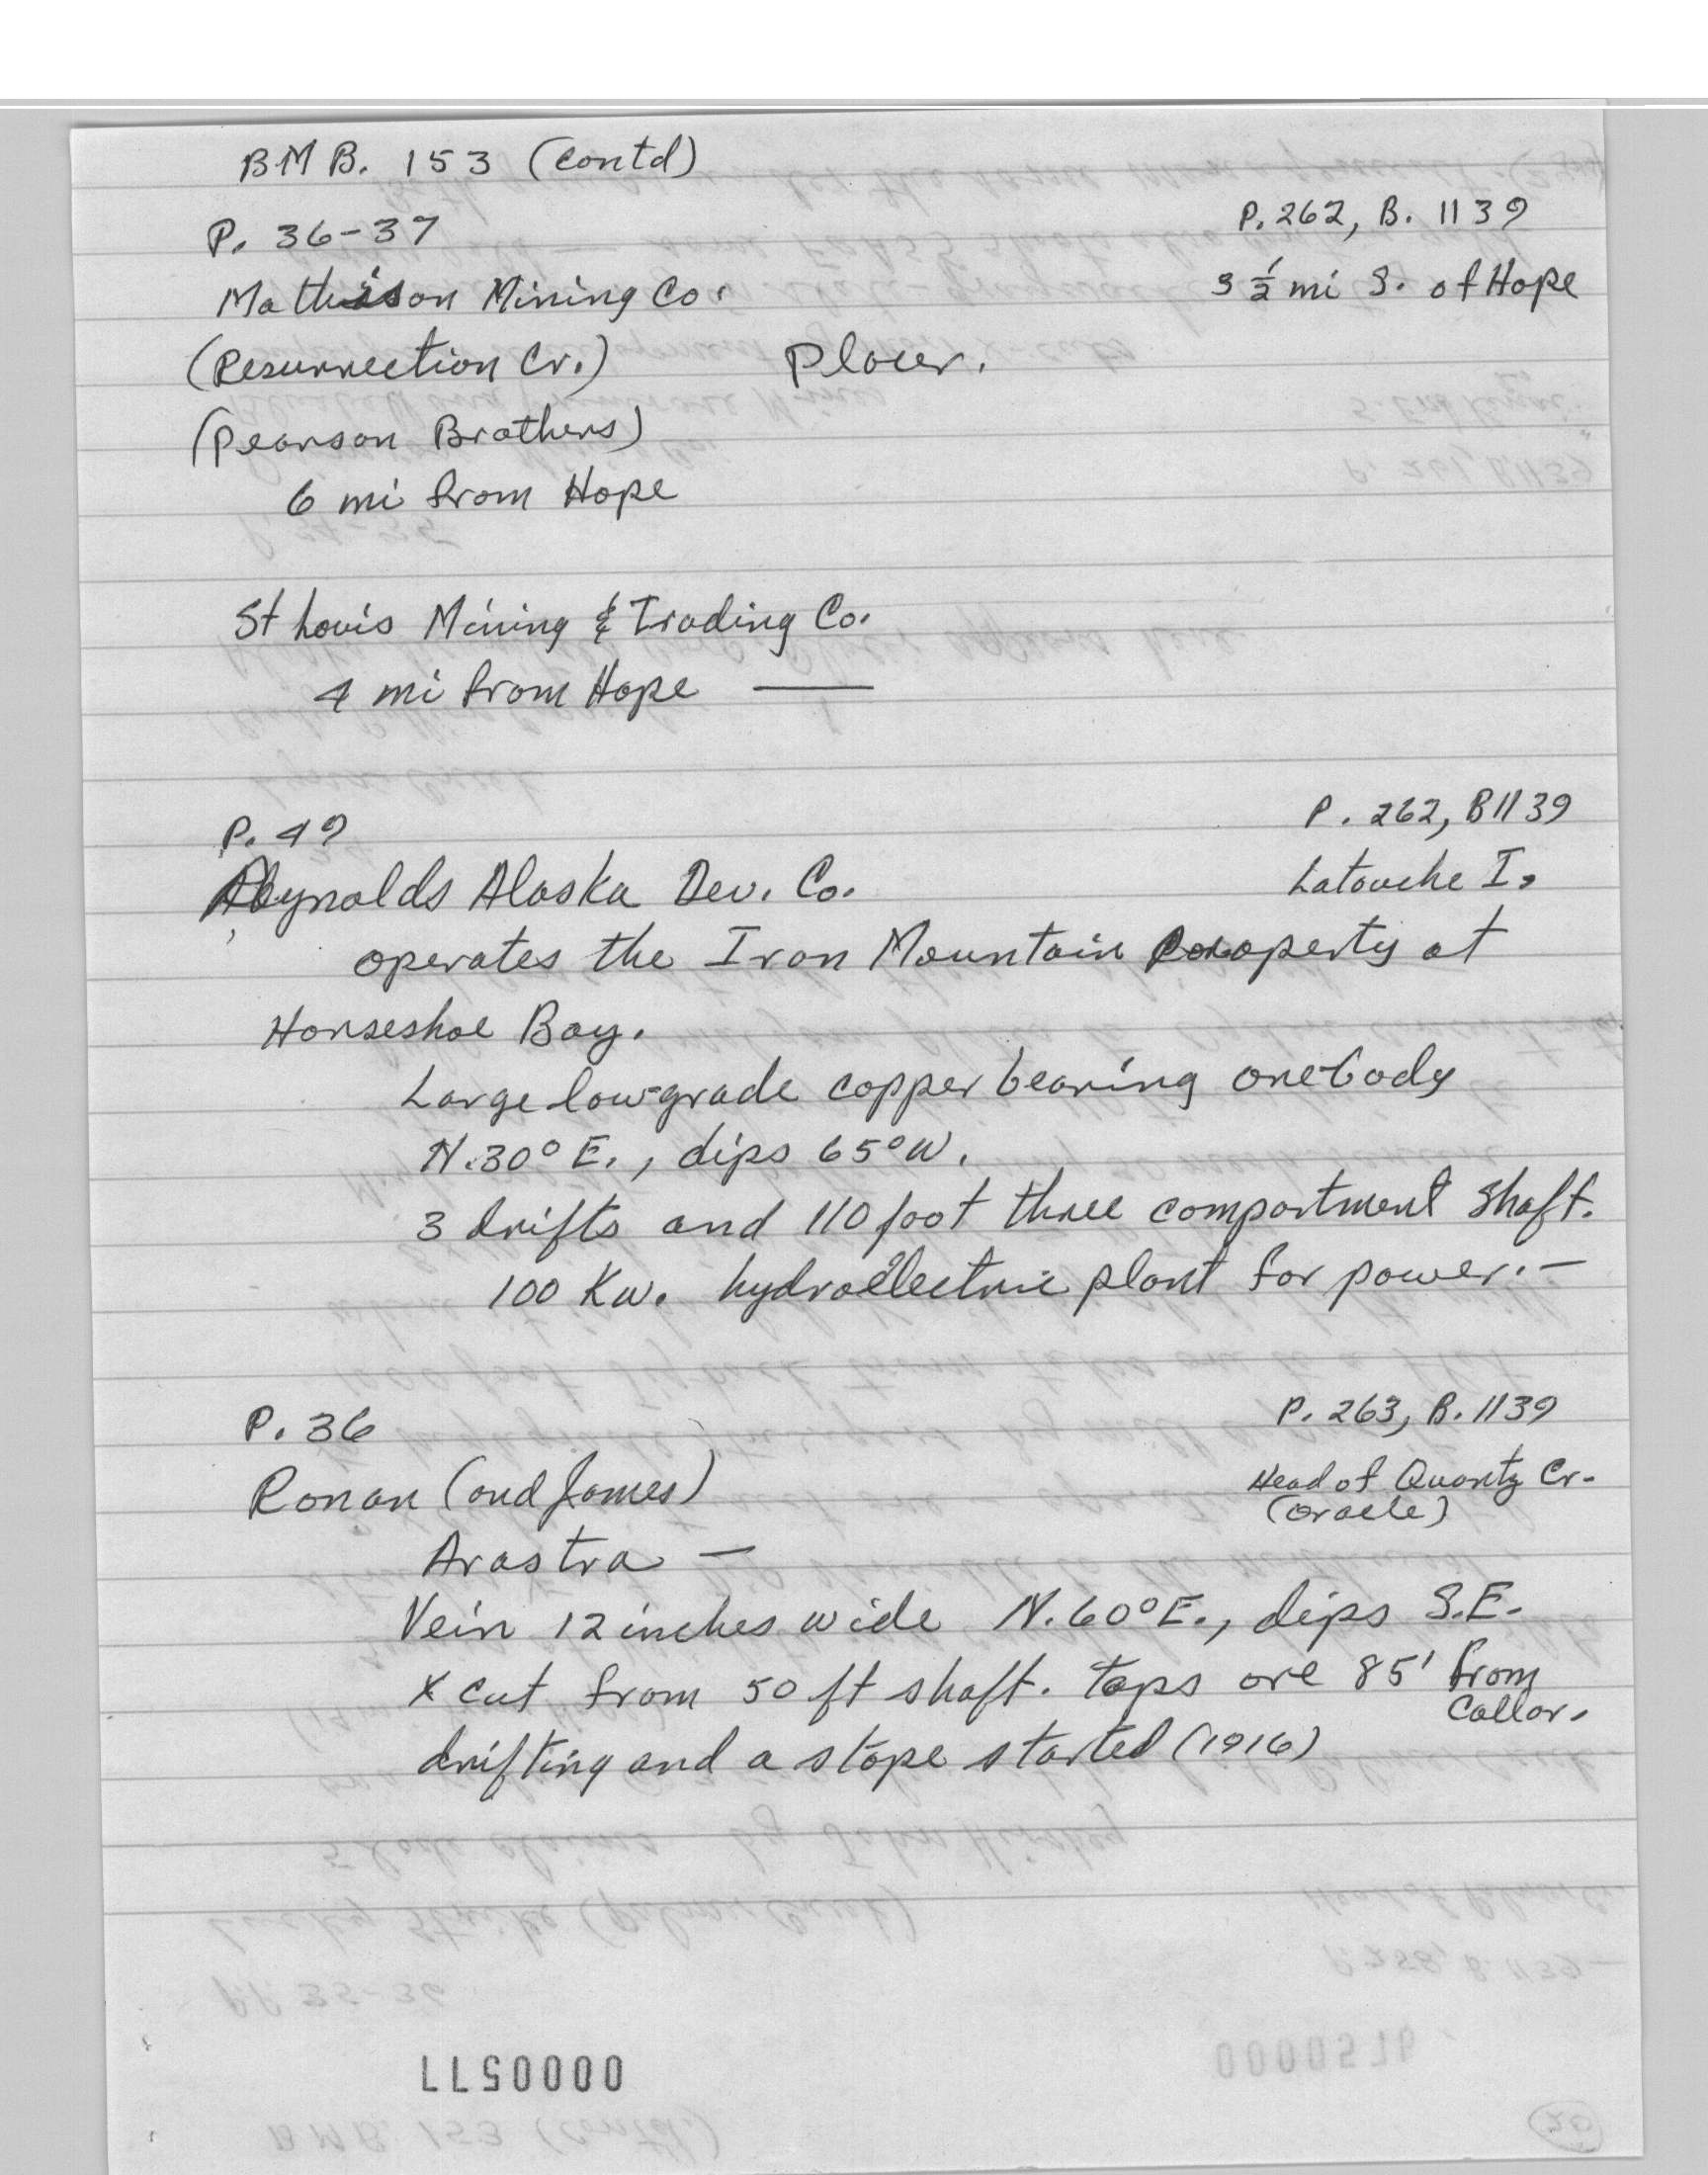 BMB. 153 (contd)
P. 36-37
P. 262, B. 1139
Mathison Mining Co.
3 1/2 mi S. of Hope
(Resurrection Cr.) Placer.
(Pearson Brothers)
6 mi from Hope
St Louis Mining & Trading Co.
4 mi from Hope —
P. 49
P. 262, B1139
Reynolds Alaska Dev. Co.
Latouche I.
operates the Iron Mountain property at
Horseshoe Bay.
Large low-grade copper bearing orebody
N.30°E., dips 65°W.
3 drifts and 110 foot three compartment shaft.
100 Kw. hydroelectric plant for power. —
P. 36
P. 263, B. 1139
Ronan (and James)
Head of Quartz Cr.
(Oracle)
Arastra —
Vein 12 inches wide N.60°E., dips S.E.
X cut from 50 ft shaft. taps ore 85' from
Collar.
drifting and a stope started (1916)
0000577